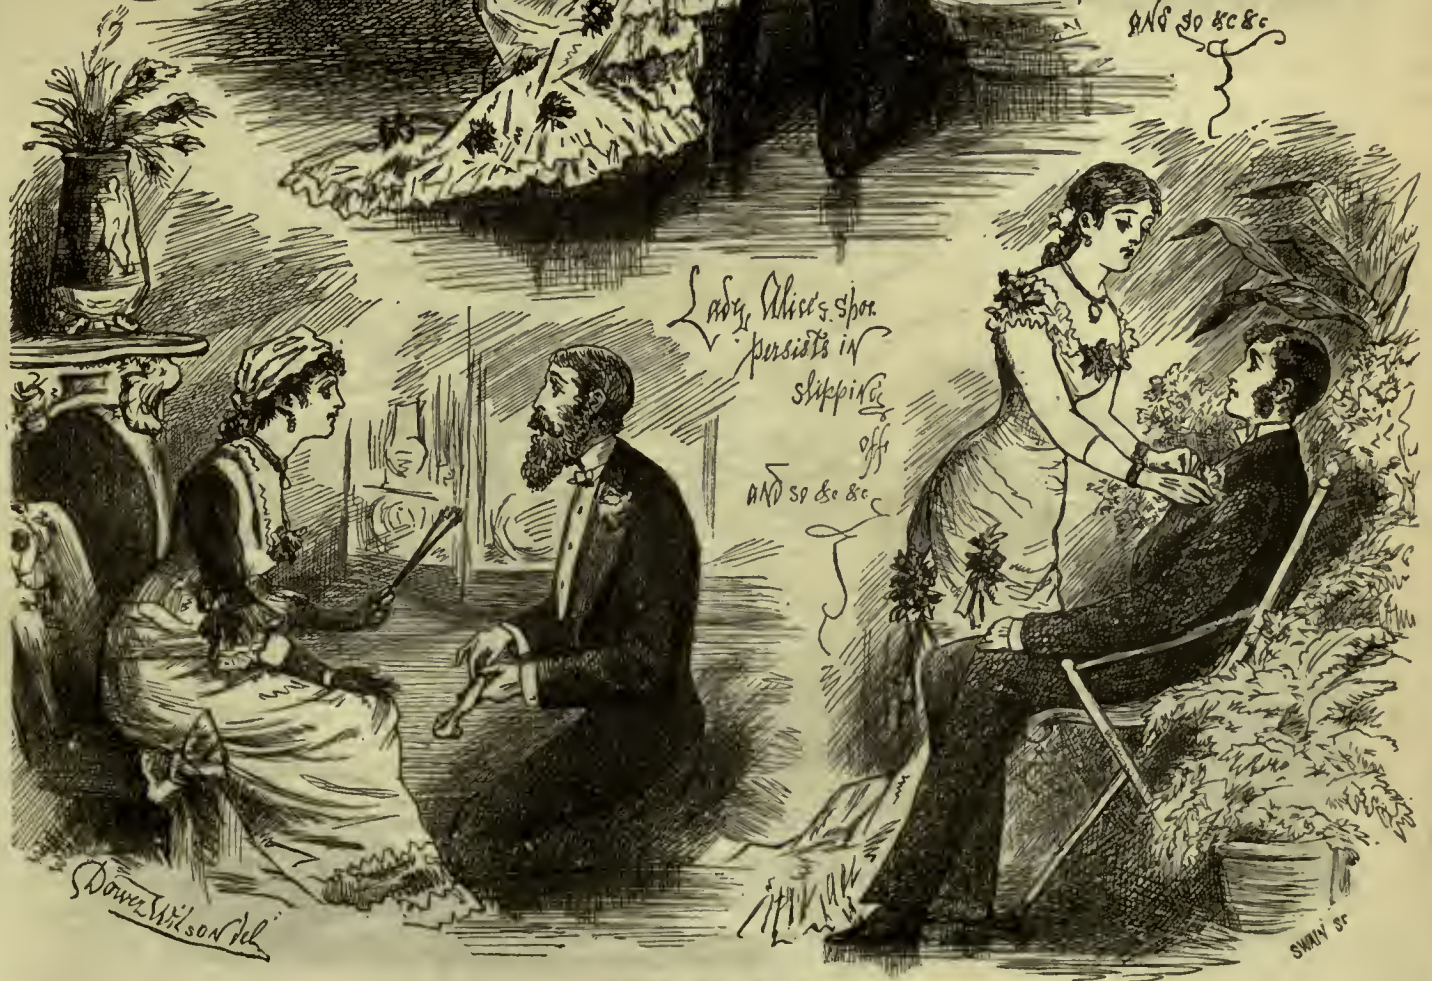 AND so &c &c
Lady Alice's shoe
persists in
slipping
off
AND so &c &c
Dower Wilson del
SWAIN Sc